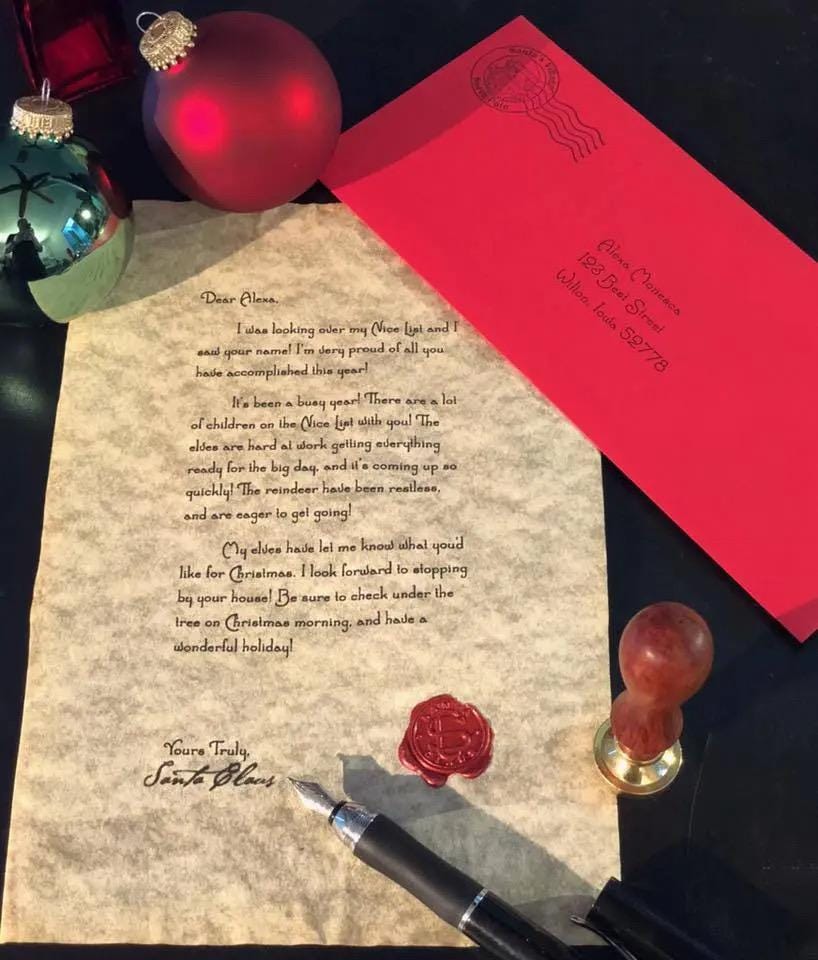 Santa's Village
North Pole
Alexa Monesca
123 Best Street
Wilton, Iowa 52778
Dear Alexa,
I was looking over my Nice List and I
saw your name! I'm very proud of all you
have accomplished this year!
It's been a busy year! There are a lot
of children on the Nice List with you! The
elves are hard at work getting everything
ready for the big day, and it's coming up so
quickly! The reindeer have been restless,
and are eager to get going!
My elves have let me know what you'd
like for Christmas. I look forward to stopping
by your house! Be sure to check under the
tree on Christmas morning, and have a
wonderful holiday!
Yours Truly,
Santa Claus